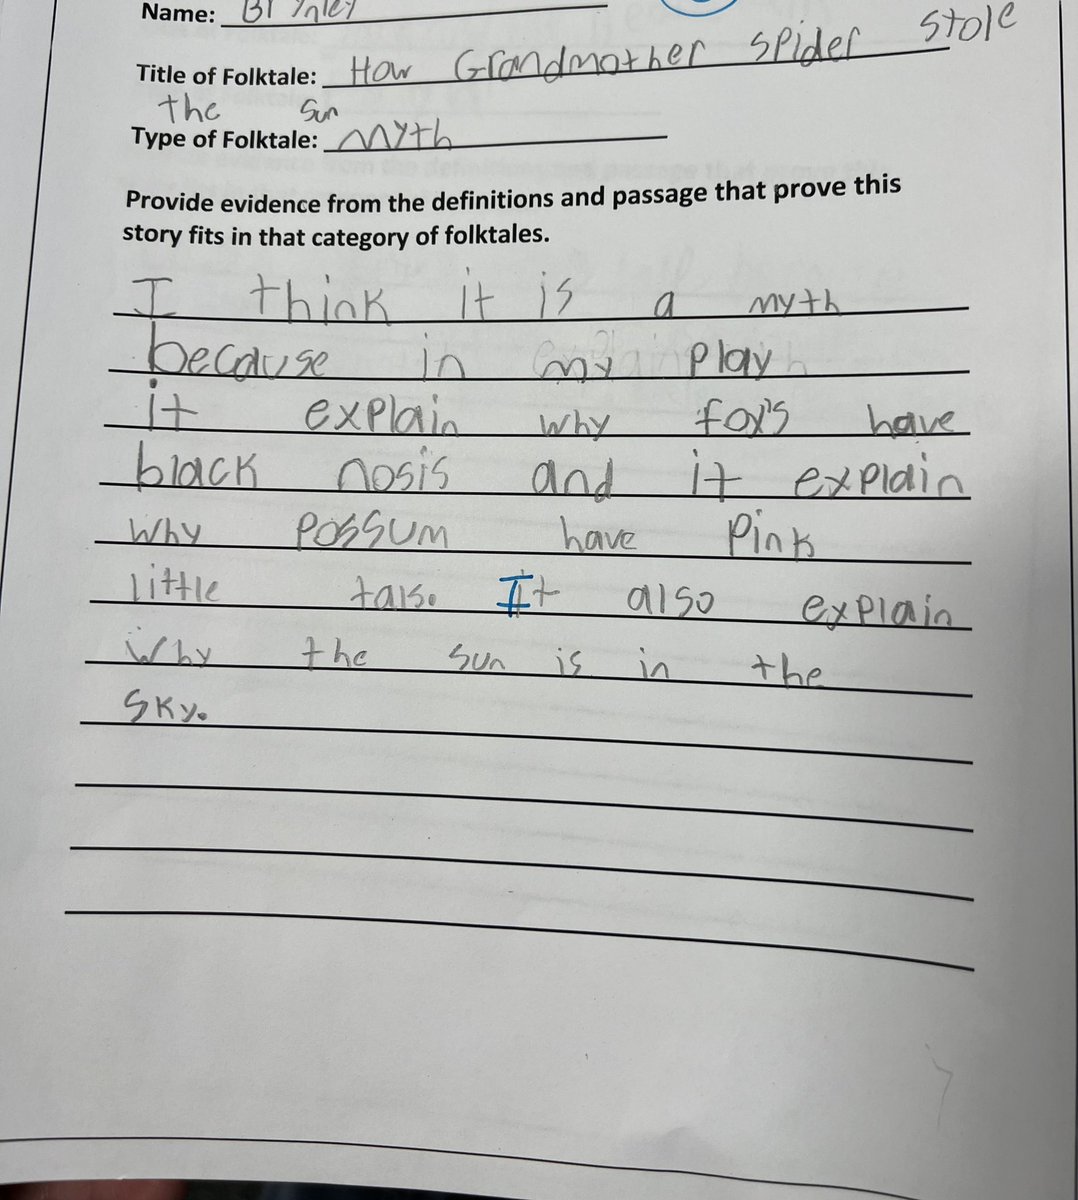 Name: Brynley
Title of Folktale: How Grandmother spider stole
the sun
Type of Folktale: myth
Provide evidence from the definitions and passage that prove this
story fits in that category of folktales.
I think it is a myth
because in my play
it explain why fox's have
black nosis and it explain
why possum have pink
little tals. It also explain
why the sun is in the
sky.